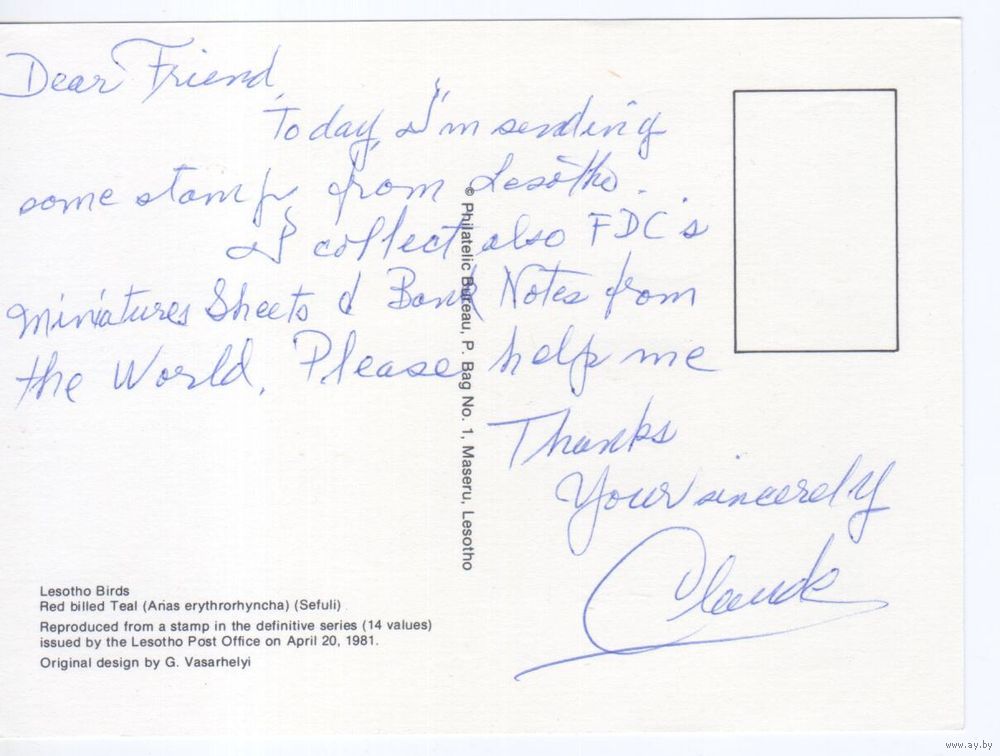 Dear Friend,
Today, I'm sending
some stamps from Lesotho.
I collect also FDC's
Miniatures Sheets & Bank Notes from
the World. Please help me
Thanks
Your sincerely
Claude
© Philatelic Bureau, P. Bag No. 1, Maseru, Lesotho
Lesotho Birds
Red billed Teal (Anas erythrorhyncha) (Sefuli)
Reproduced from a stamp in the definitive series (14 values)
issued by the Lesotho Post Office on April 20, 1981.
Original design by G. Vasarhelyi
www.ay.by